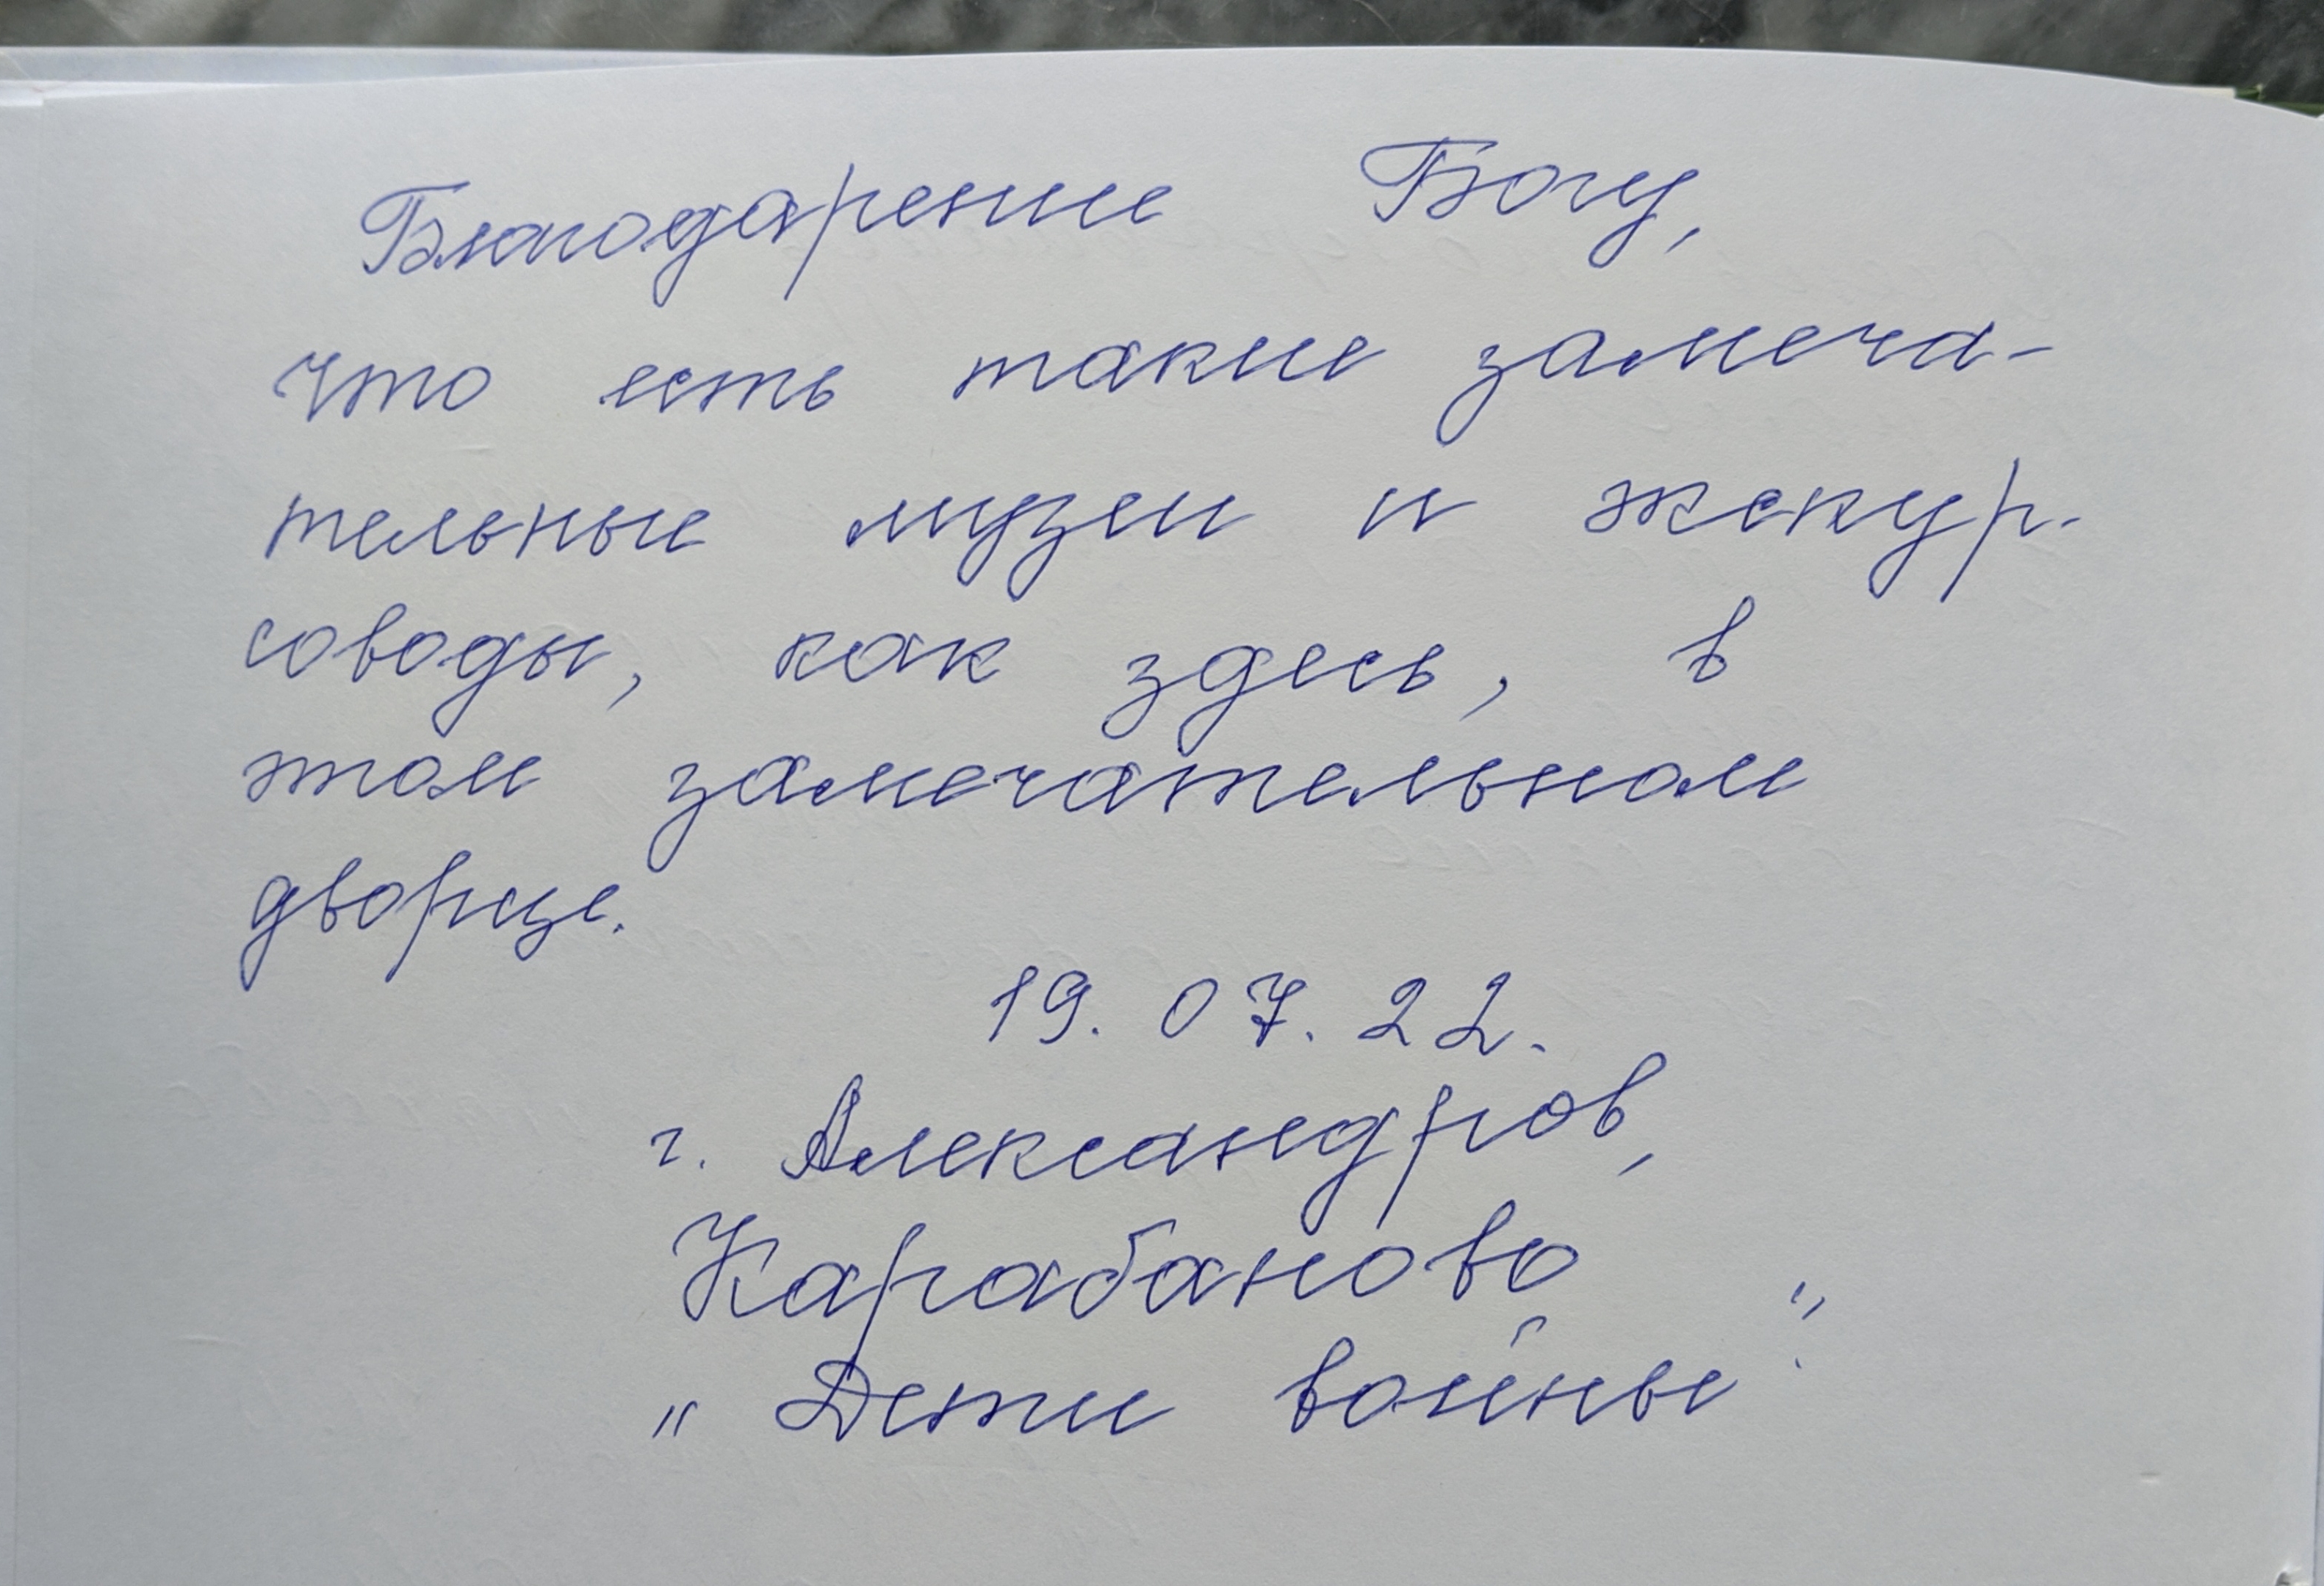 Благодарение Богу,
что есть такие замеча-
тельные музеи и экскур-
соводы, как здесь, в
этом замечательном
дворце.
19.07.22.
г. Александров,
Карабаново
"Дети войны".